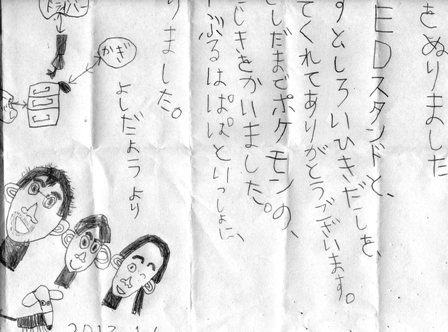 をぬりました
EDスタンドと、
すとしろいひきだしを、
てくれてありがとうございます。
しだまでポケモンの、
じきをかいました。
ぶるはぱぱといっしょに、
りました。
よしだようより
ドライバー
かぎ